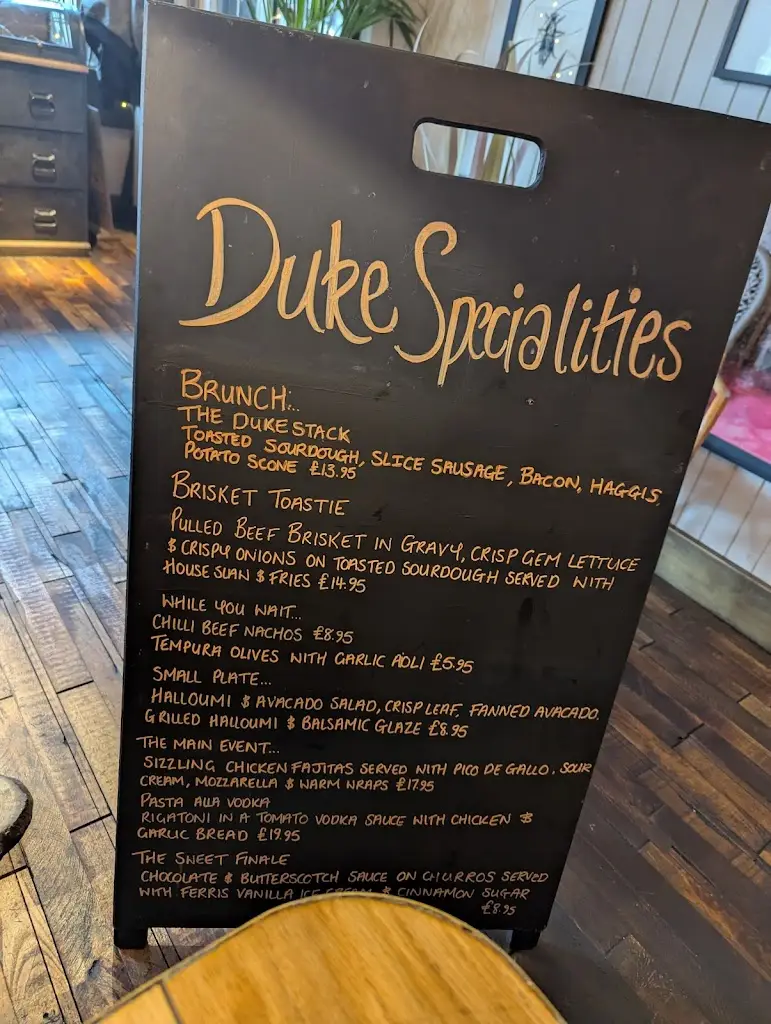 Duke Specialities
BRUNCH...
THE DUKE STACK
TOASTED SOURDOUGH, SLICE SAUSAGE, BACON, HAGGIS,
POTATO SCONE £13.95
BRISKET TOASTIE
PULLED BEEF BRISKET IN GRAVY, CRISP GEM LETTUCE
& CRISPY ONIONS ON TOASTED SOURDOUGH SERVED WITH
HOUSE SLAW & FRIES £14.95
WHILE YOU WAIT...
CHILLI BEEF NACHOS £8.95
TEMPURA OLIVES WITH GARLIC AIOLI £5.95
SMALL PLATE...
HALLOUMI & AVACADO SALAD, CRISP LEAF, FANNED AVACADO,
GRILLED HALLOUMI & BALSAMIC GLAZE £8.95
THE MAIN EVENT...
SIZZLING CHICKEN FAJITAS SERVED WITH PICO DE GALLO, SOUR
CREAM, MOZZARELLA & WARM WRAPS £17.95
PASTA ALLA VODKA
RIGATONI IN A TOMATO VODKA SAUCE WITH CHICKEN &
GARLIC BREAD £19.95
THE SWEET FINALE
CHOCOLATE & BUTTERSCOTCH SAUCE ON CHURROS SERVED
WITH FERRIS VANILLA ICE CREAM & CINNAMON SUGAR
£8.95